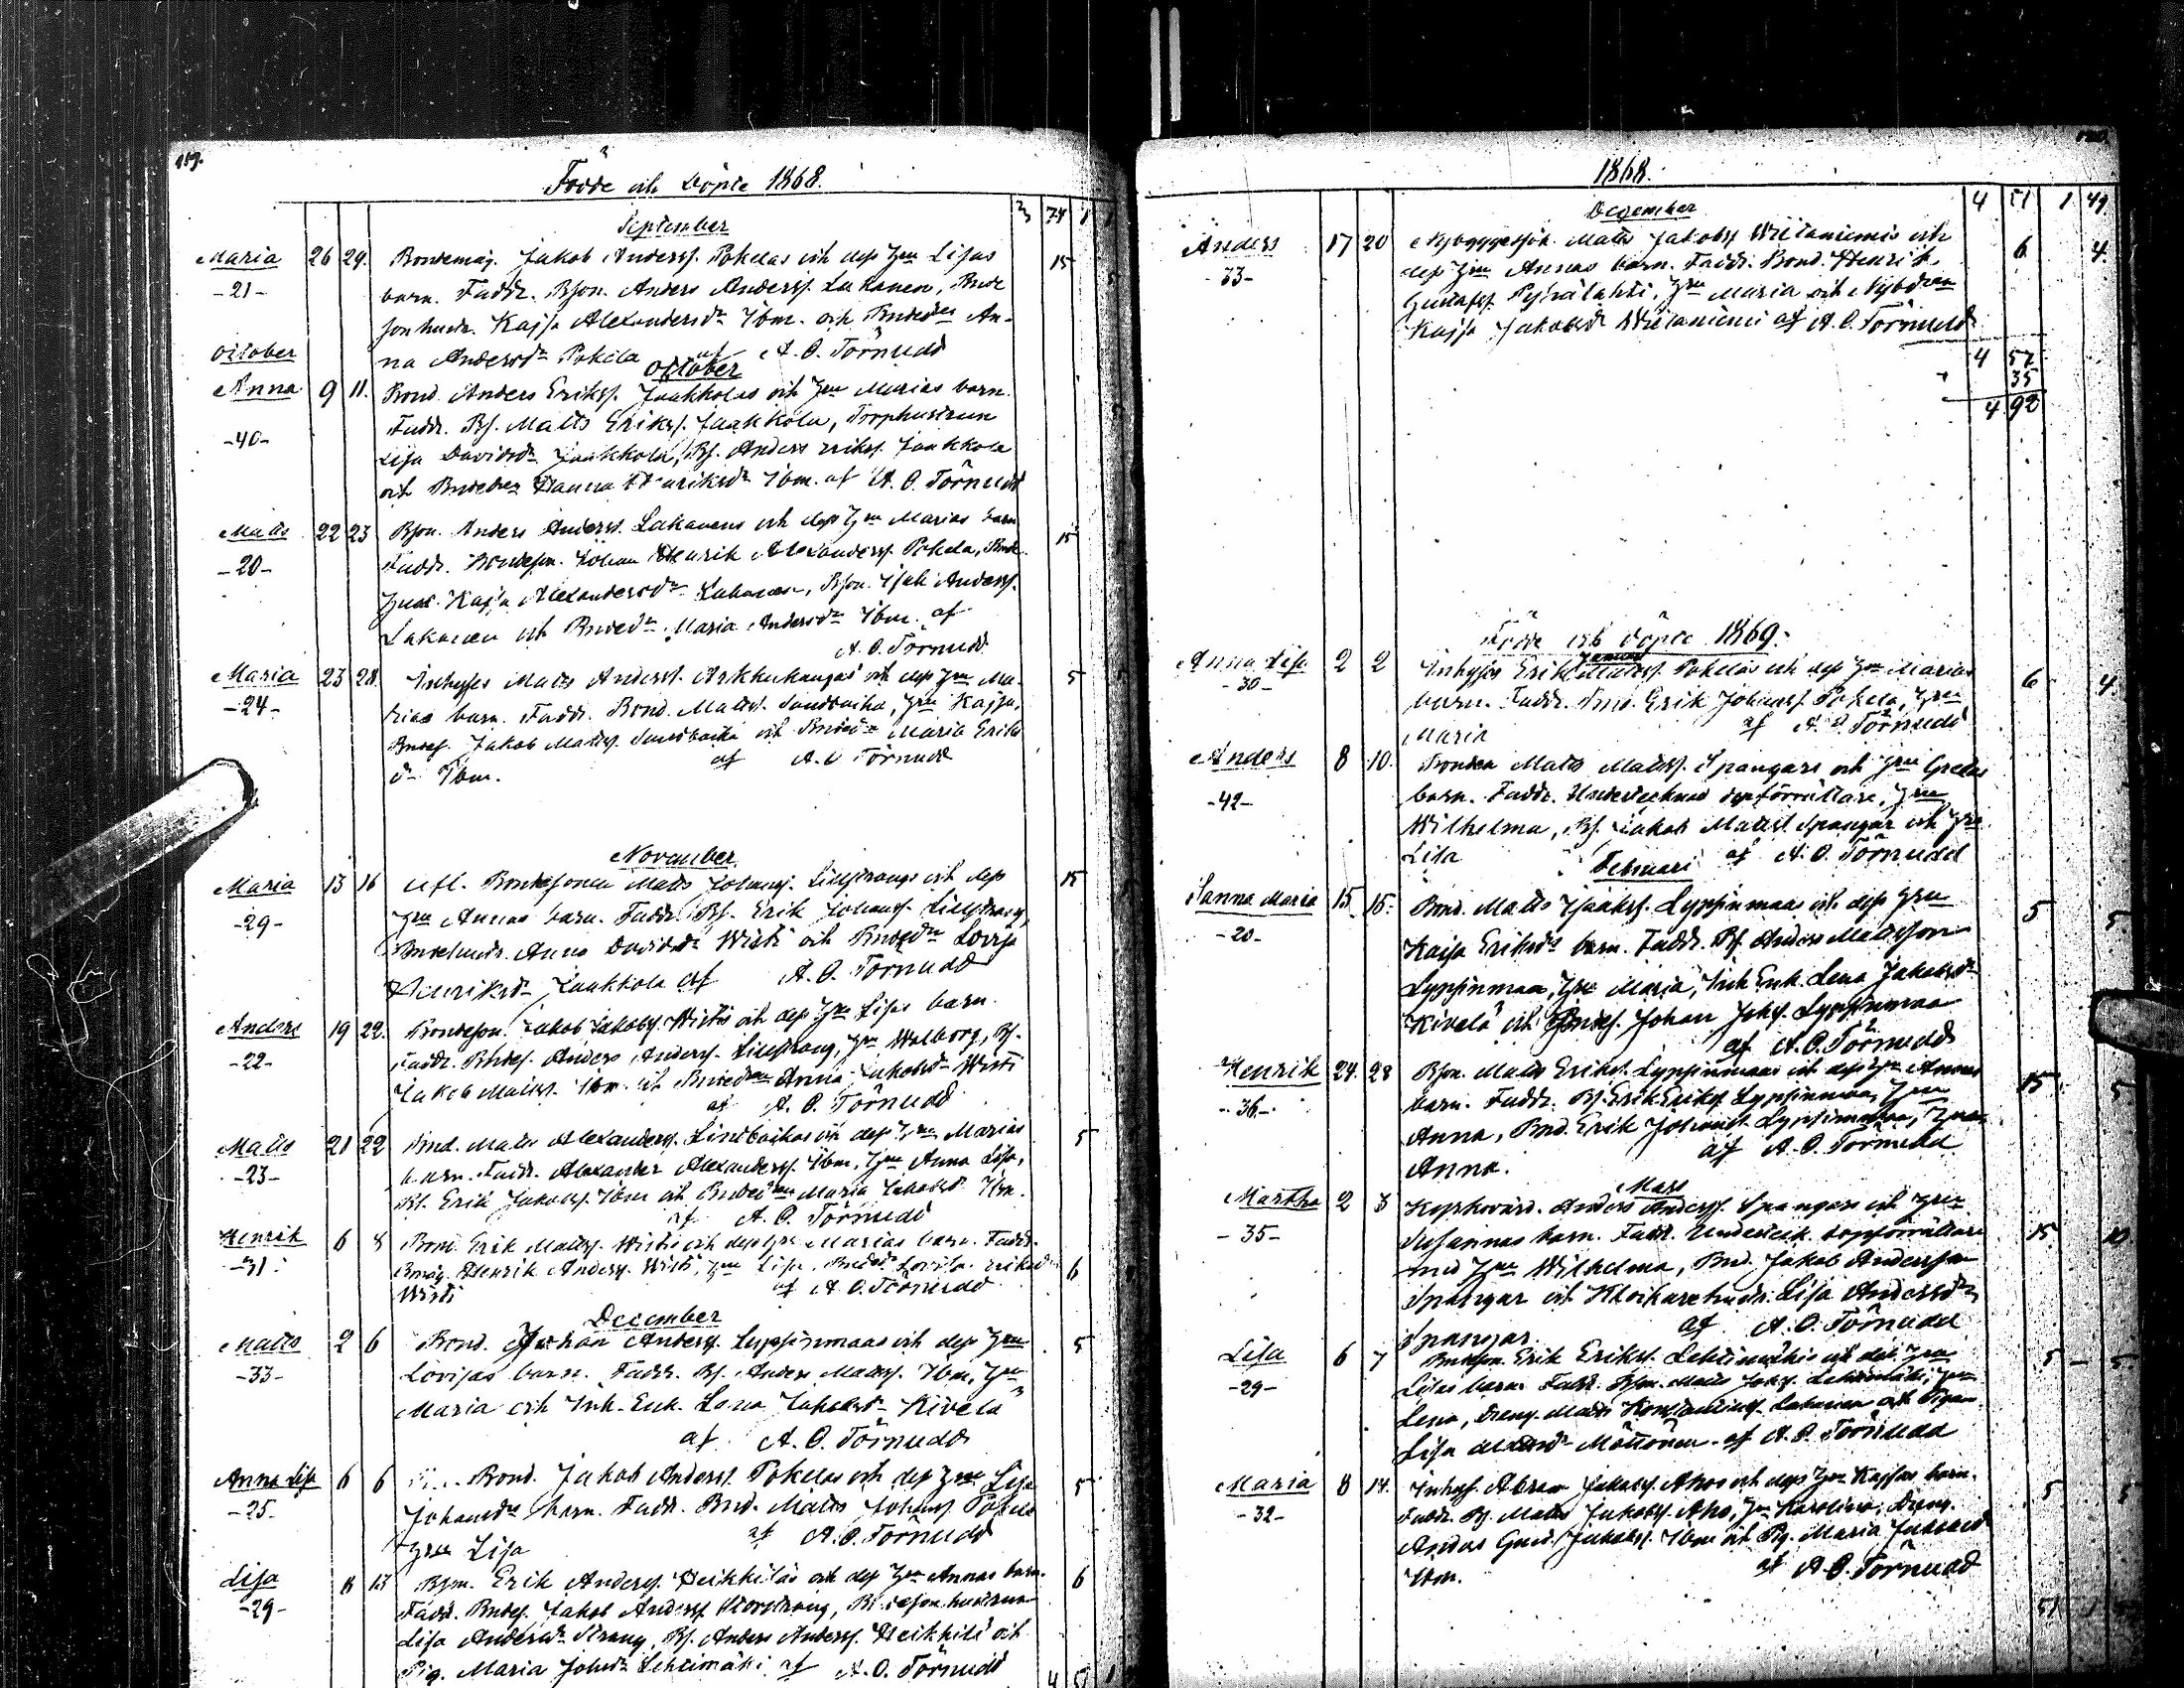 159.
Födde och döpte 1868.
3 74 1
September
Maria 26 29. Bondemåg. Jakob Anderss. Pokelas och dess Hru Lisas 15
-21- barn. Faddr. Bson. Anders Anderss. Lakanen, Bnde
sonhustr. Kajsa Alexandersdr Ibm. och Bndedr An-
na Andersdr Pokela af A. O. Törnudd
October
October
Anna 9 11. Bond. Anders Erikss. Jaakkolas och Hru Marias barn.
Faddr. Bs. Matts Erikss. Jaakkola, Torphustrun
-40- Lisa Davidsdr Jaakkola, Bs. Anders Erikss. Jaakkola
och Bndedr Sanna Henriksdr Ibm. af A. O. Törnudd
Matts 22 23 Bson. Anders Anderss. Lakanens och dess Hru Marias barn 15
-20- Faddr. Bondeson. Johan Henrik Alexanderss. Pokela, Bnde
Kajsa Alexandersdr Lakanen, Bson. Isak Anderss.
Lakanen och Bndedr Maria Andersdr Ibm. af
A. O. Törnudd
Maria 23 28. Inhyses Matts Anderss. Arkkukangas och dess Hru Ma- 5
-24- rias barn. Faddr. Bond. Matts Sandbacka, Hru Kajsa,
Bndes. Jakob Matss. Sandbacka och Bndedr Maria Eriks
dr Ibm. af A. O Törnudd
November
Maria 13 16 Afl. Bondesonen Matts Johanss. Lillstrangs och dess 15
-29- Hru Annas barn. Faddr. Bs. Erik Johanss. Lillstrang,
Bndehustr. Anna Davidsdr Wisti och Bndedr Lovisa
Henriksdr Jaakkola af A. O. Törnudd
Anders 19 22. Bondeson. Jakob Jakobss. Wistis och dess Hru Lisas barn.
-22- Faddr. Bndes. Anders Anderss. Lillstrang, Hru Walborg, Bs.
Jakob Matss. Ibm. och Bndedtrn Anna Jakobsdr Wisti
af A. O. Törnudd
Matts 21 22 Bnd. Matts Alexanderss. Lindbackas och dess Hru Marias 5
-23- barn. Faddr. Alexander Alexanderss. Ibm, Hru Anna Lisa,
Bs. Erik Jakobss. Ibm och Bndedtrn Maria Jakobsdr Ibm.
af A. O. Törnudd
Henrik 6 8 Bond. Erik Mattss. Wistis och dess Hru Marias barn. Faddr.
-31- Bmåg. Henrik Anderss. Wisti, Hru Lisa, Bndedr Lovisa Eriksdr 6
Wisti af A. O. Törnudd
December
Matts 2 6 Bond. Johan Anderss. Lyppinmaas och dess Hru 5
-33- Lovisas barn. Faddr. Bs. Anders Mattss. Ibm, Hru
Maria och Inh. Enk. Lena Jakobsdr Kivelä
af A. O. Törnudd
Anna Lisa 6 6 Bond. Jakob Anderss. Pokelas och dess Hru Lisa 5
-25- Johansdr barn. Faddr. Bnd. Matts Johanss. Pokela
Hru Lisa af A. O. Törnudd
Lisa 8 13 Bson. Erik Anderss. Heikkiläs och dess Hru Annas barn. 6
-29- Faddr. Bndes. Jakob Anderss. Storstrang, Bondesonhustrun
Lisa Andersdr Strang, Bs. Anders Anderss. Heikkilä och
Pig. Maria Johsdr Lehtimäki af A. O. Törnudd
4 51 1
1868.
4 51 1 49
December
Anders 17 20 Nybyggessön. Matts Jakobss. Wietaniemis och 6 4
-33- dess Hru Annas barn. Faddr. Bond. Henrik
Gustafss. Pyhälahti, Hru Maria och Nybdtrn
Kajsa Jakobsdr Wietaniemi af A. O. Törnudd
4 57
35
4 92
Födde och döpte 1869.
Januari
Anna Lisa 2 2 Inhyses Erik Matss. Pokelas och dess Hru Marias 6 4
-30- barn. Faddr. Bnd. Erik Johanss. Pokela, Hru
Maria af A. O. Törnudd
Anders 8 10. Bonden Matts Mattss. Spangars och Hru Gretas
-42- barn. Faddr. Undertecknad dopförrättare, Hru
Wilhelma, Bs. Jakob Mattss. Spangar och Hru
Lisa af A. O. Törnudd
Februari
Sanna Maria 15 15. Bond. Matts Isakss. Lyppinmaas och dess Hru 5 5
-20- Kaisa Eriksdr barn. Faddr. Bs. Anders Mattsson
Lyppinmaa, Hru Maria, Inh Enk. Lena Jakobsdr
Kivelä och Bndes. Johan Johss. Lyppinmaa
af A. O. Törnudd
Henrik 24. 28 Bson. Matts Erikss. Lyppinmaas och dess Hru Annas 15 5
-36- barn. Faddr. Bs. Erik Erikss. Lyppinmaa, Hru
Anna, Bnd. Erik Johanss. Lyppinmaa, Hru
Anna. af A. O. Törnudd
Mars
Martha 2 3 Kyrkovärd. Anders Anderss. Spangars och Hru
-35- Susannas barn. Faddr. Underteck. dopförrättare 15 10
med Hru Wilhelma, Bnd. Jakob Andersson
Spangar och Klockarehustr. Lisa Andersdr
Spangar. af A. O. Törnudd
Lisa 6 7 Bndeson. Erik Erikss. Lehtimäkis och dess Hru 5 5
-29- Lisas barn. Faddr. Bson. Matts Johss. Lehtimäki, Hru
Lena, Dreng. Matts Konstantins. Lakanen och Pigan
Lisa Alexsdr Möttönen. af A. O. Törnudd
Maria 8 14. Inhys. Abram Jakobss. Ahos och dess Hru Kajsas barn. 5 5
-32- Faddr. Bs. Matts Jakobss. Aho, Hru Karolina, Dreng.
Anders Gust. Jakobss. Ibm och Pig. Maria Jakobsdr
Ibm. af A. O. Törnudd
51 1